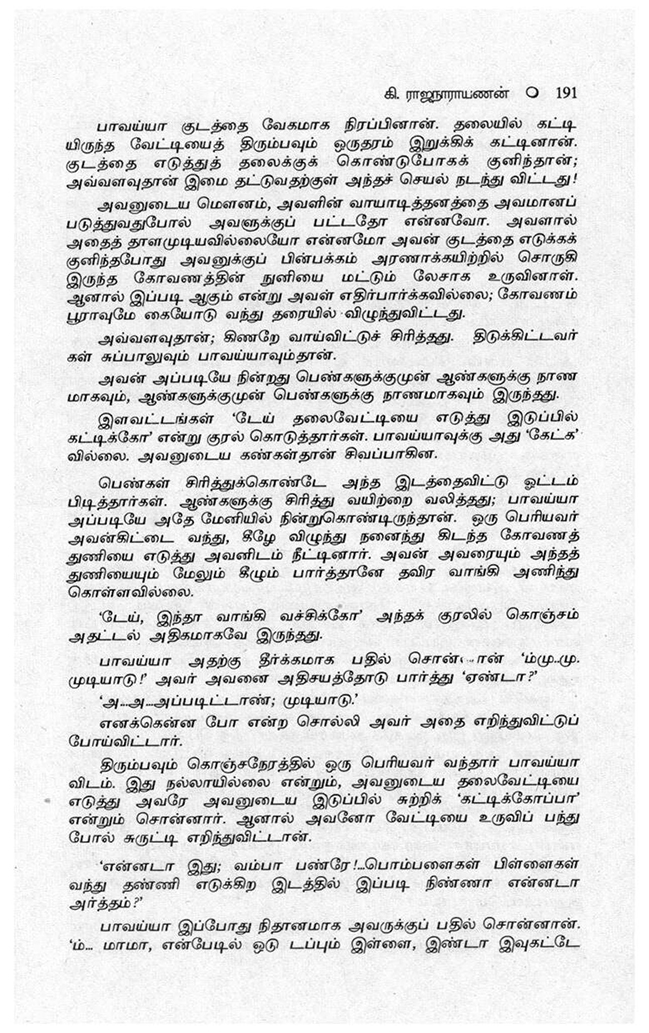 கி. ராஜநாராயணன் O 191
பாவய்யா குடத்தை வேகமாக நிரப்பினான். தலையில் கட்டி
யிருந்த வேட்டியைத் திரும்பவும் ஒருதரம் இறுக்கிக் கட்டினான்.
குடத்தை எடுத்துத் தலைக்குக் கொண்டுபோகக் குனிந்தான்;
அவ்வளவுதான் இமை தட்டுவதற்குள் அந்தச் செயல் நடந்து விட்டது!
அவனுடைய மௌனம், அவளின் வாயாடித்தனத்தை அவமானப்
படுத்துவதுபோல் அவளுக்குப் பட்டதோ என்னவோ. அவளால்
அதைத் தாளமுடியவில்லையோ என்னமோ அவன் குடத்தை எடுக்கக்
குனிந்தபோது அவனுக்குப் பின்பக்கம் அரணாக்கயிற்றில் சொருகி
இருந்த கோவணத்தின் நுனியை மட்டும் லேசாக உருவினாள்.
ஆனால் இப்படி ஆகும் என்று அவள் எதிர்பார்க்கவில்லை; கோவணம்
பூராவுமே கையோடு வந்து தரையில் விழுந்துவிட்டது.
அவ்வளவுதான்; கிணறே வாய்விட்டுச் சிரித்தது. திடுக்கிட்டவர்
கள் சுப்பாலுவும் பாவய்யாவும்தான்.
அவன் அப்படியே நின்றது பெண்களுக்குமுன் ஆண்களுக்கு நாண
மாகவும், ஆண்களுக்குமுன் பெண்களுக்கு நாணமாகவும் இருந்தது.
இளவட்டங்கள் 'டேய் தலைவேட்டியை எடுத்து இடுப்பில்
கட்டிக்கோ' என்று குரல் கொடுத்தார்கள். பாவய்யாவுக்கு அது 'கேட்க'
வில்லை. அவனுடைய கண்கள்தான் சிவப்பாகின.
பெண்கள் சிரித்துக்கொண்டே அந்த இடத்தைவிட்டு ஓட்டம்
பிடித்தார்கள். ஆண்களுக்கு சிரித்து வயிற்றை வலித்தது; பாவய்யா
அப்படியே அதே மேனியில் நின்றுகொண்டிருந்தான். ஒரு பெரியவர்
அவன்கிட்டை வந்து, கீழே விழுந்து நனைந்து கிடந்த கோவணத்
துணியை எடுத்து அவனிடம் நீட்டினார். அவன் அவரையும் அந்தத்
துணியையும் மேலும் கீழும் பார்த்தானே தவிர வாங்கி அணிந்து
கொள்ளவில்லை.
'டேய், இந்தா வாங்கி வச்சிக்கோ' அந்தக் குரலில் கொஞ்சம்
அதட்டல் அதிகமாகவே இருந்தது.
பாவய்யா அதற்கு தீர்க்கமாக பதில் 'ம்மு..மு.
முடியாடு!' அவர் அவனை அதிசயத்தோடு பார்த்து 'ஏண்டா?'
'அ...அ...அப்படிட்டாண்; முடியாடு.'
எனக்கென்ன போ என்ற சொல்லி அவர் அதை எறிந்துவிட்டுப்
போய்விட்டார்.
திரும்பவும் கொஞ்சநேரத்தில் ஒரு பெரியவர் வந்தார் பாவய்யா
விடம். இது நல்லாயில்லை என்றும், அவனுடைய தலைவேட்டியை
எடுத்து அவரே அவனுடைய இடுப்பில் சுற்றிக் 'கட்டிக்கோப்பா'
என்றும் சொன்னார். ஆனால் அவனோ வேட்டியை உருவிப் பந்து
போல் சுருட்டி எறிந்துவிட்டான்.
'என்னடா இது; வம்பா பண்ரே!...பொம்பளைகள் பிள்ளைகள்
வந்து தண்ணி எடுக்கிற இடத்தில் இப்படி நிண்ணா என்னடா
அர்த்தம்?'
பாவய்யா இப்போது நிதானமாக அவருக்குப் பதில் சொன்னான்.
'ம்... மாமா, என்பேடில் ஒடு டப்பும் இள்ளை, இண்டா இவுகட்டே